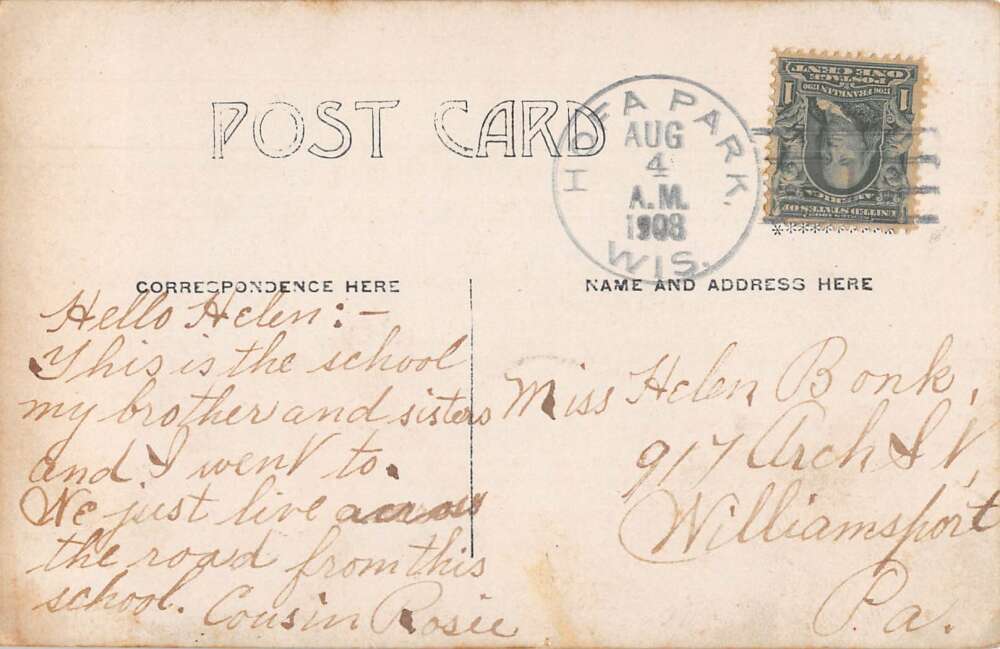 POST CARD
HOFA PARK,
AUG
4
A.M.
1908
WIS.
ONE CENT
POSTAGE
1706 FRANKLIN 1790
1 1
UNITED STATES OF
AMERICA
CORRESPONDENCE HERE
NAME AND ADDRESS HERE
Hello Helen:-
This is the school
my brother and sisters
and I went to.
We just live across
the road from this
school. Cousin Rosie
Miss Helen Bonk,
917 Arch St,
Williamsport
Pa.